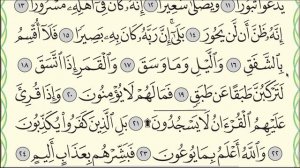 يَدْعُواْ ثُبُورًا ١١ وَيَصْلَىٰ سَعِيرًا ١٢ إِنَّهُۥ كَانَ فِىٓ أَهْلِهِۦ مَسْرُورًا ١٣
إِنَّهُۥ ظَنَّ أَن لَّن يَحُورَ ١٤ بَلَىٰٓ إِنَّ رَبَّهُۥ كَانَ بِهِۦ بَصِيرًا ١٥ فَلَآ أُقْسِمُ
بِٱلشَّفَقِ ١٦ وَٱلَّيْلِ وَمَا وَسَقَ ١٧ وَٱلْقَمَرِ إِذَا ٱتَّسَقَ ١٨
لَتَرْكَبُنَّ طَبَقًا عَن طَبَقٍ ١٩ فَمَا لَهُمْ لَا يُؤْمِنُونَ ٢٠ وَإِذَا قُرِئَ
عَلَيْهِمُ ٱلْقُرْءَانُ لَا يَسْجُدُونَ ۩ ٢١ بَلِ ٱلَّذِينَ كَفَرُواْ يُكَذِّبُونَ
٢٢ وَٱللَّهُ أَعْلَمُ بِمَا يُوعُونَ ٢٣ فَبَشِّرْهُم بِعَذَابٍ أَلِيمٍ ٢٤